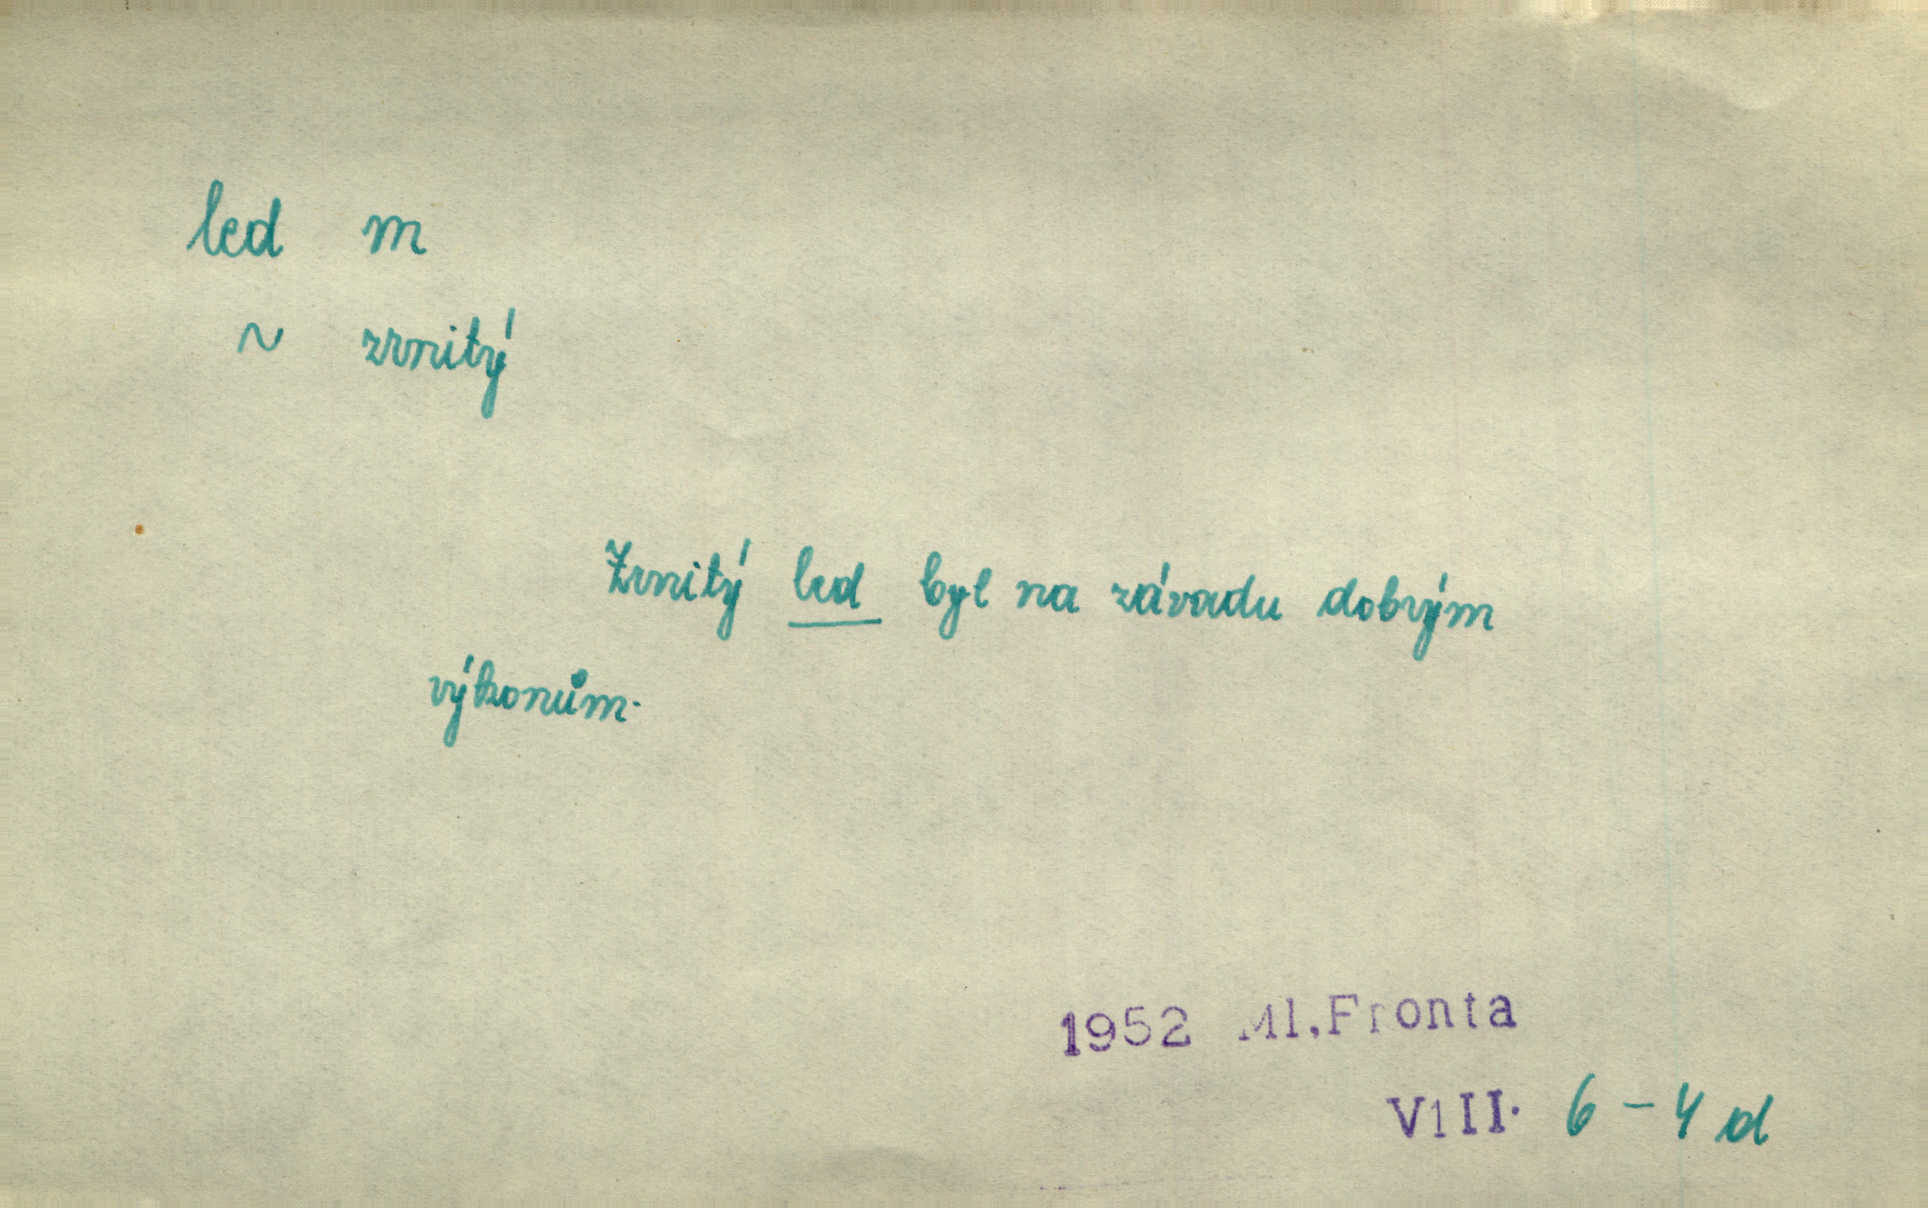 led m
~ zrnitý
Zrnitý led byl na závadu dobrým
výkonům.
1952 Ml.Fronta
VIII. 6 – 4 d